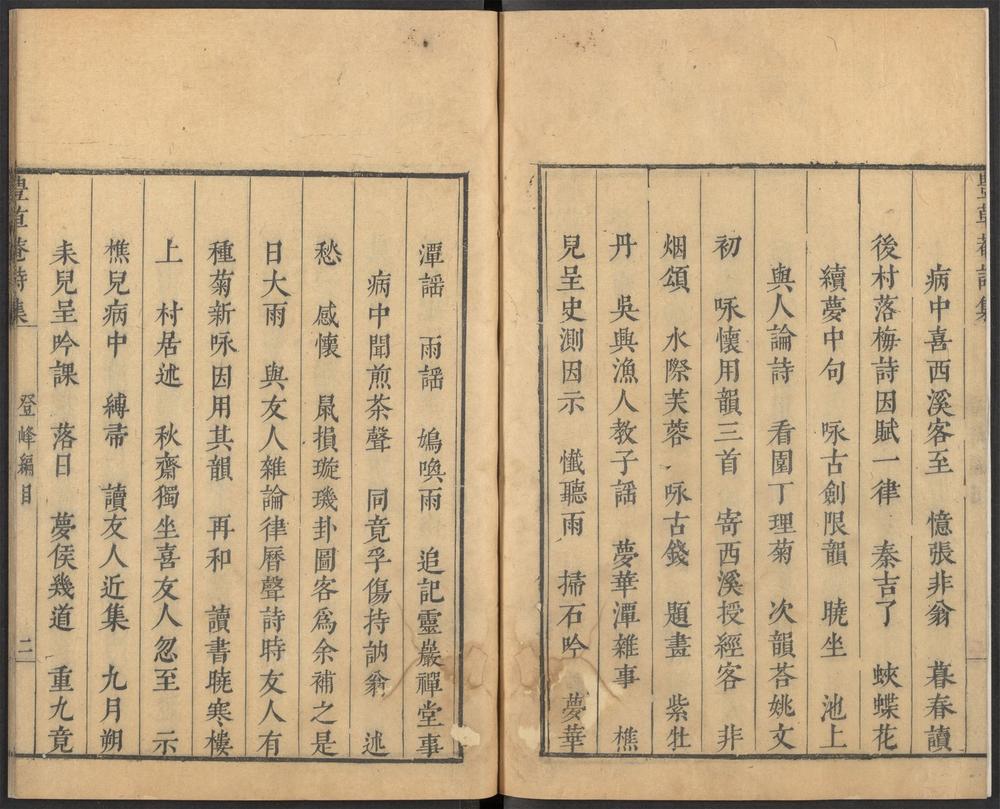 豐草菴詩集
病中喜西溪客至　憶張非翁　暮春讀
後村落梅詩因賦一律　秦吉了　蛺蝶花
續夢中句　咏古劍限韻　曉坐　池上
與人論詩　看園丁理菊　次韻荅姚文
初　咏懷用韻三首　寄西溪授經客　非
烟頌　水際芙蓉　咏古錢　題畫　紫牡
丹　吳興漁人教子謡　夢華潭雜事　樵
兒呈史測因示　懺聽雨　掃石吟　夢華
潭謡　雨謡　鳩喚雨　追記靈巖禪堂事
病中聞煎茶聲　同竟孚傷持訥翁　述
愁　感懷　鼠損璇璣卦圖客爲余補之是
日大雨　與友人雜論律曆聲詩時友人有
種菊新咏因用其韻　再和　讀書曉寒樓
上　村居述　秋齋獨坐喜友人忽至　示
樵兒病中　縛帚　讀友人近集　九月朔
耒兒呈吟課　落日　夢侯幾道　重九竟
豐草菴詩集　登峰編目　二